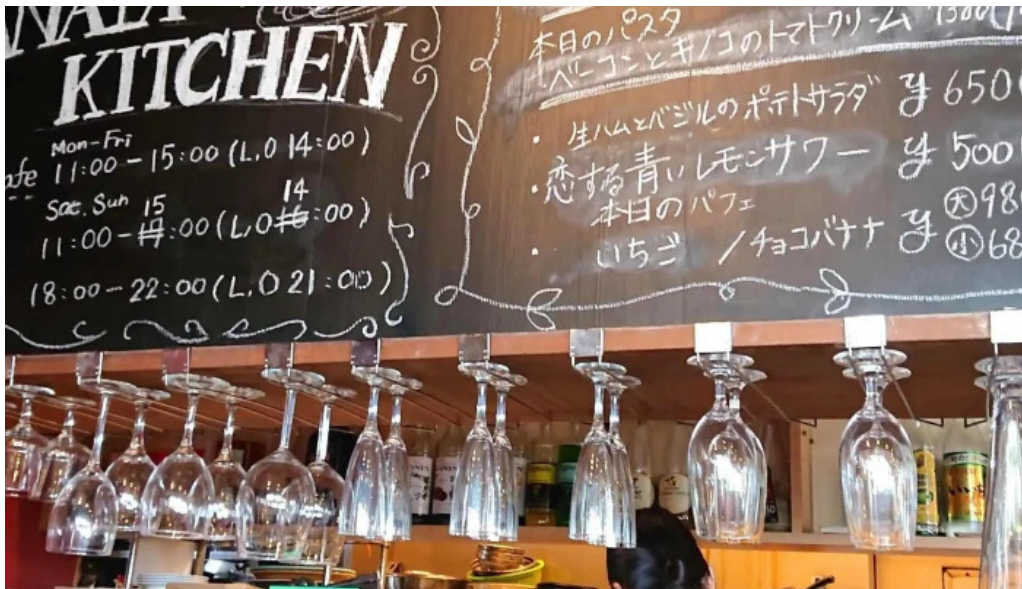 KITCHEN
Mon-Fri
11:00-15:00 (L,O 14:00)
Sat. Sun 15 14
11:00-:00 (L,O :00)
18:00-22:00 (L,O 21:00)
本日のパスタ
ベーコンとキノコのトマトクリーム
・生ハムとバジルのポテトサラダ ¥650
・恋する青いレモンサワー ¥500
本日のパフェ
・いちご/チョコバナナ ¥ 大98
小68